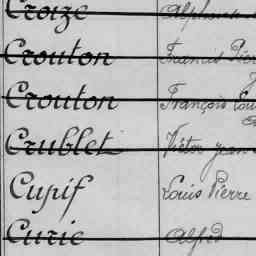 Croize Alphonse
Crouton Francis Pier
Crouton François Loui
Crublet Victor Jean
Cupif Louis Pierre
Curie Alfred